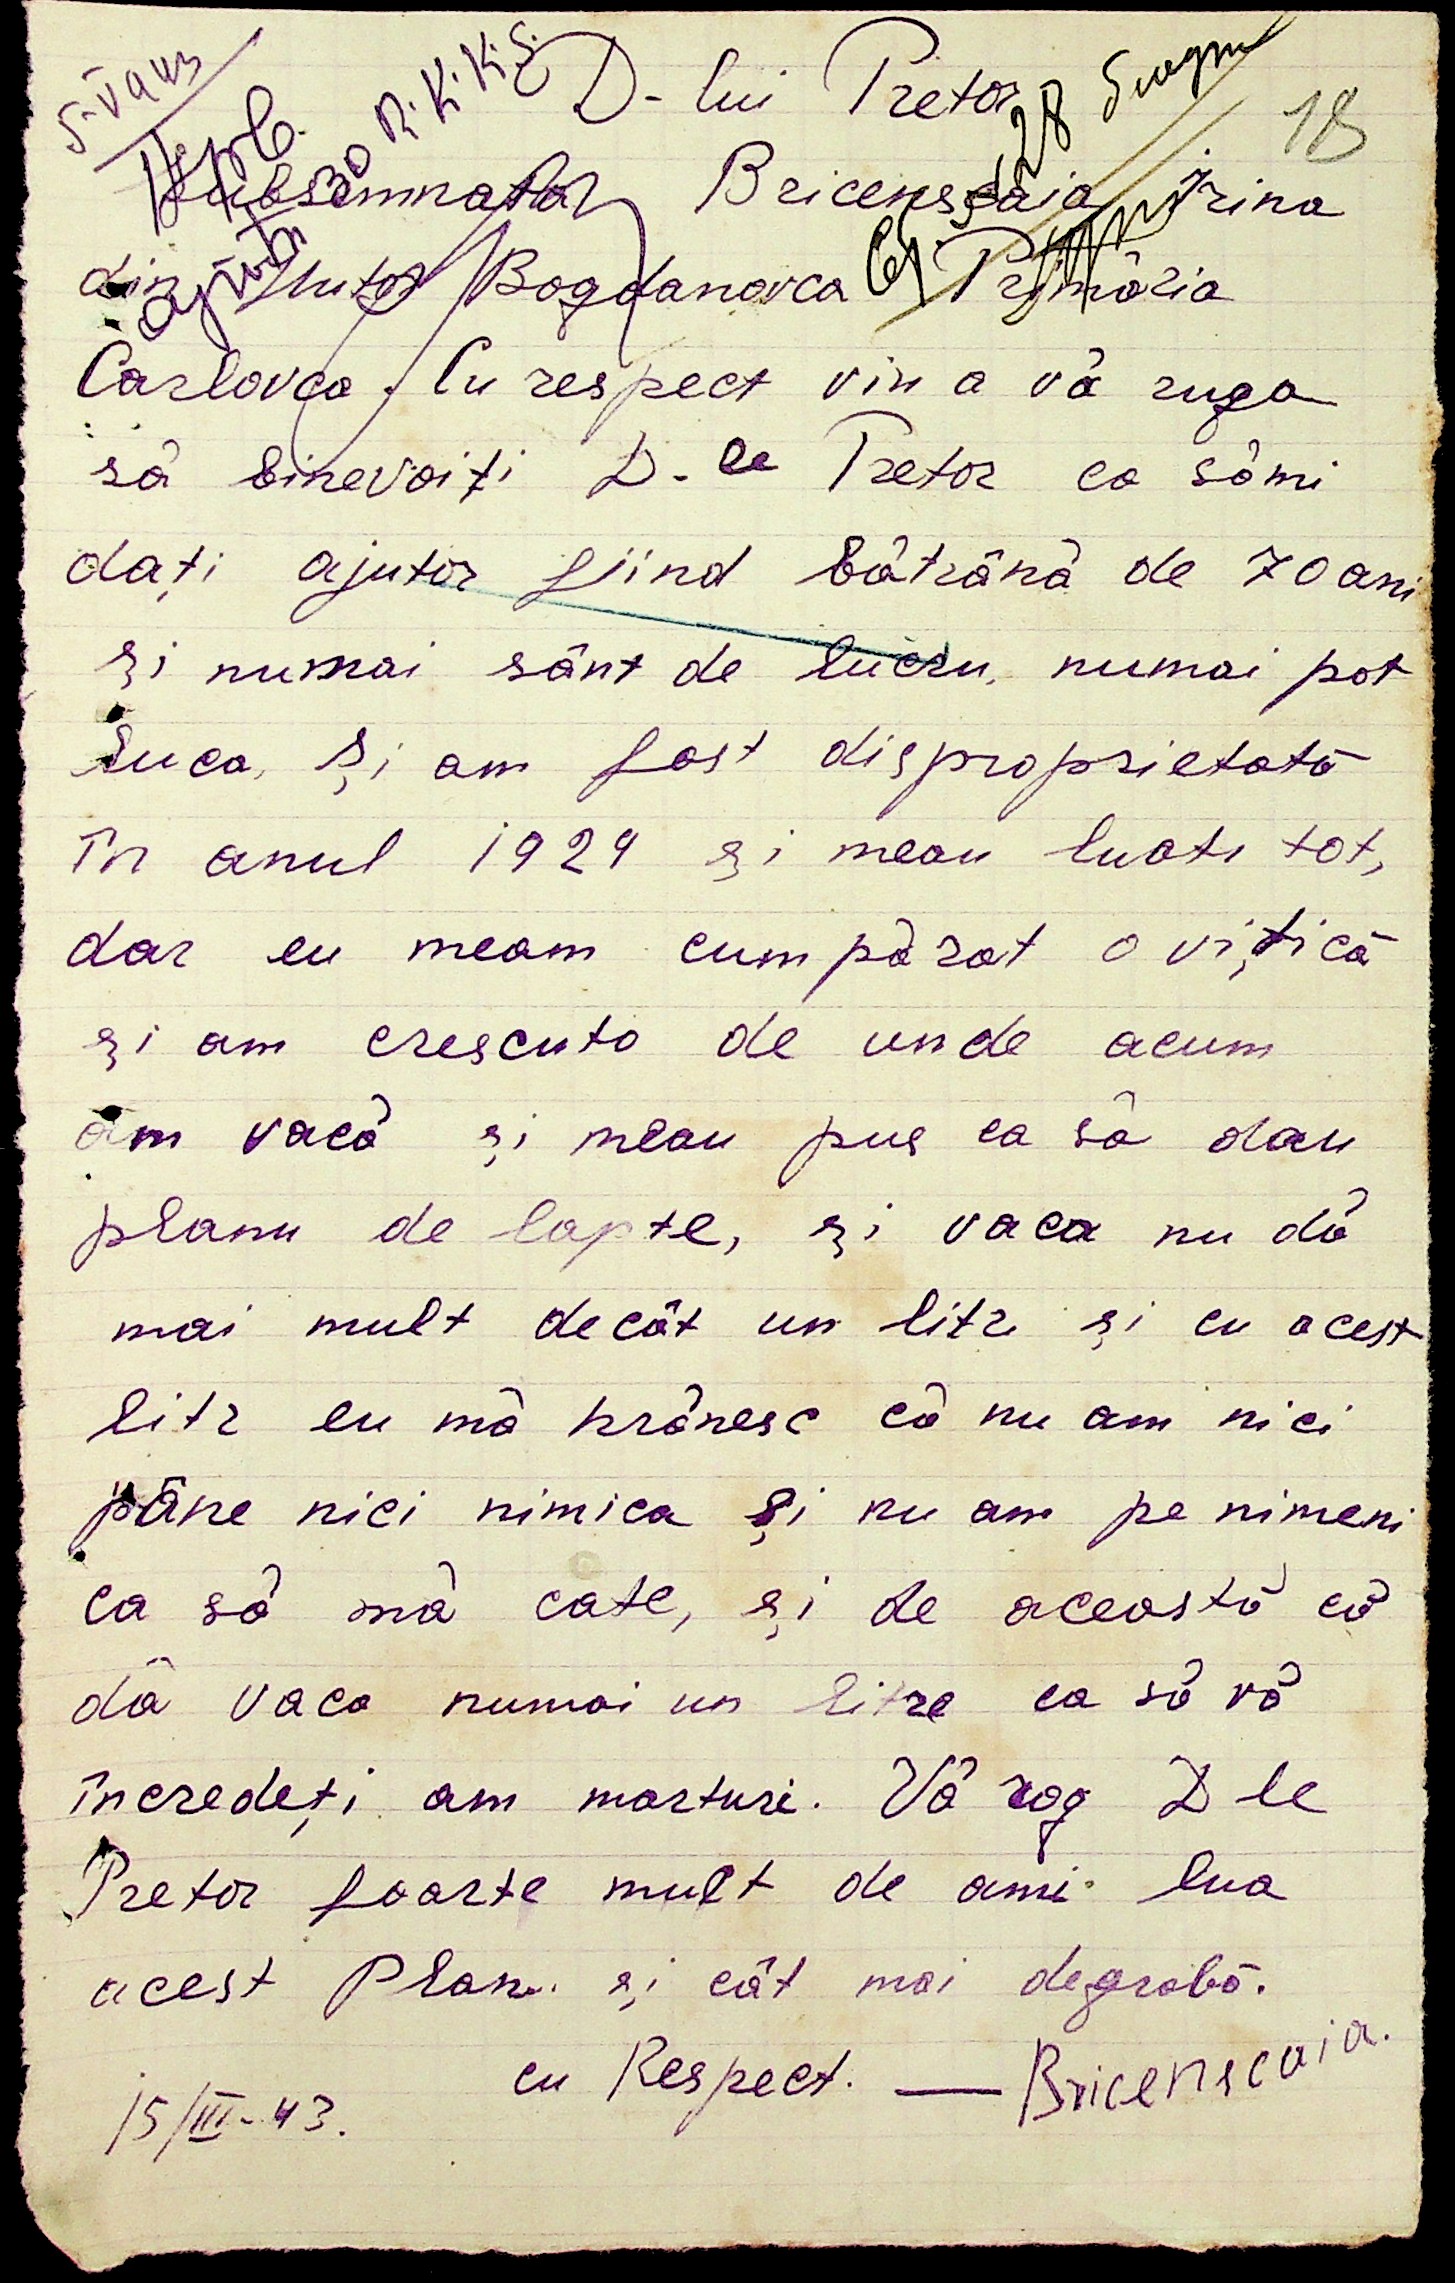 D-lui Pretor
18
Subsemnata Bricenscaia Irina
din hutor Bogdanovca Primăria
Carlovca. Cu respect vin a vă ruga
să binevoiți D-le Pretor ca sămi
dați ajutor fiind bătrână de 70 ani
și numai sânt de lucru, numai pot
luca, Și am fost disproprietată
în anul 1929 și meau luat tot,
dar eu meam cumpărat o vițică
și am crescuto de unde acum
am vacă și meau pus ca să dau
planu de lapte, și vaca nu dă
mai mult decât un litr și cu acest
litr eu mă hrănesc că nu am nici
pâne nici nimica și nu am pe nimeni
ca să mă cate, și de această că
dă vaca numai un litre ca să vă
încredeți am marturi. Vă rog D le
Pretor foarte mult de ami lua
acest Plan și cât mai degrabă.
cu Respect. — Bricenscaia.
15/III-43.